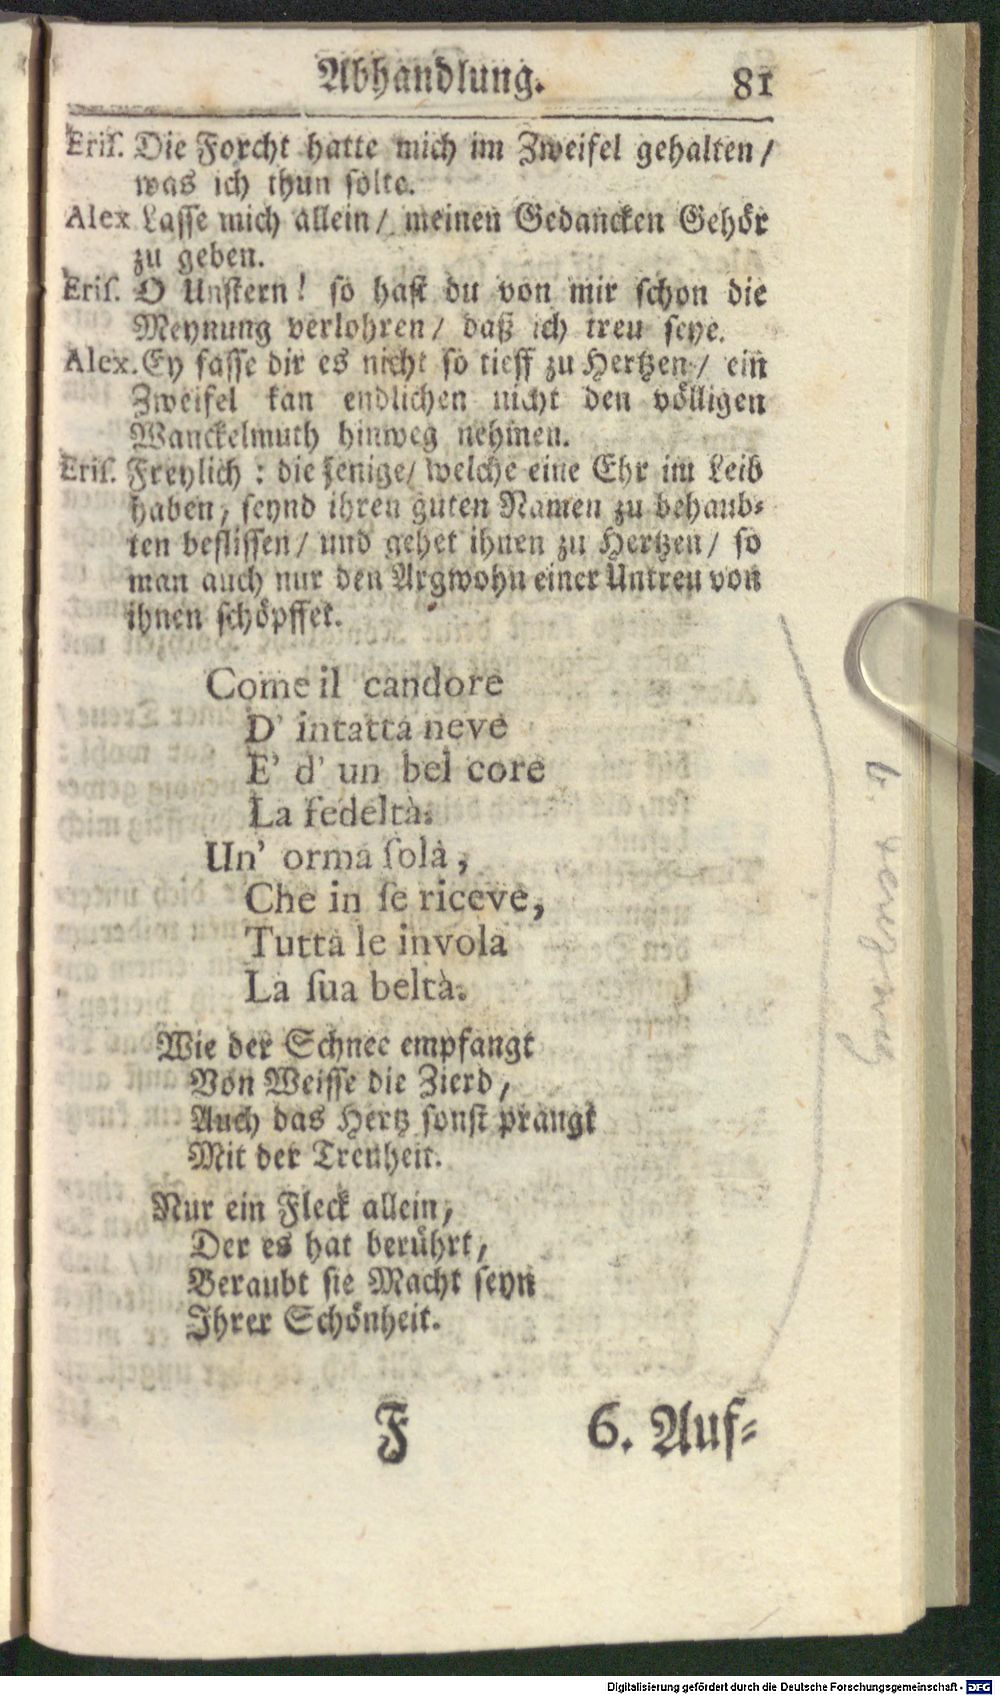 Abhandlung. 81
Eriſ. Die Forcht hatte mich im Zweifel gehalten /
was ich thun ſolte.
Alex Laſſe mich allein / meinen Gedancken Gehör
zu geben.
Eriſ. O Unſtern! ſo haſt du von mir ſchon die
Meynung verlohren / daß ich treu ſeye.
Alex. Ey faſſe dir es nicht ſo tieff zu Hertzen / ein
Zweifel kan endlichen nicht den völligen
Wanckelmuth hinweg nehmen.
Eriſ. Freylich : die jenige / welche eine Ehr im Leib
haben, ſeynd ihren guten Namen zu behaub⸗
ten befliſſen / und gehet ihnen zu Hertzen / ſo
man auch nur den Argwohn einer Untreu von
ihnen ſchöpffet.
Come il candore
D' intatta neve
E' d' un bel core
La fedeltà.
Un' orma ſola,
Che in ſe riceve,
Tutta le invola
La ſua beltà.
Wie der Schnee empfangt
Von Weiſſe die Zierd,
Auch das Hertz ſonſt prangt
Mit der Treuheit.
Nur ein Fleck allein,
Der es hat berührt,
Beraubt ſie Macht ſeyn
Ihrer Schönheit.
F 6. Auf⸗
Digitalisierung gefördert durch die Deutsche Forschungsgemeinschaft - DFG